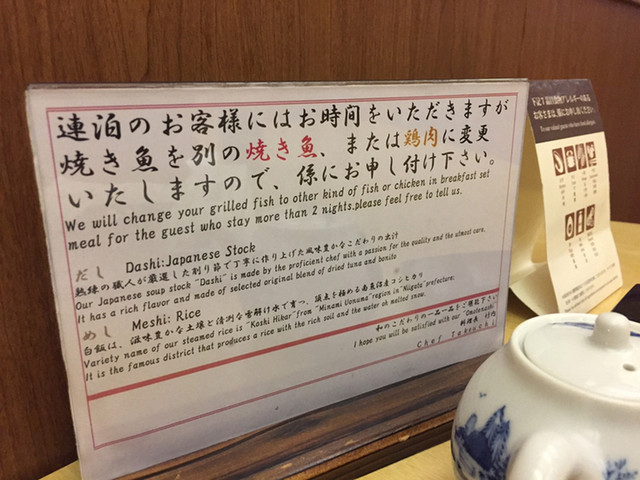 連泊のお客様にはお時間をいただきますが
焼き魚を別の焼き魚、または鶏肉に変更
いたしますので、係にお申し付け下さい。
We will change your grilled fish to other kind of fish or chicken in breakfast set
meal for the guest who stay more than 2 nights.please feel free to tell us.
だし Dashi:Japanese Stock
熟練の職人が厳選した削り節で丁寧に作り上げた風味豊かなこだわりの出汁
Our Japanese soup stock "Dashi" is made by the proficient chef with a passion for the quality and the utmost care.
It has a rich flavor and made of selected original blend of dried tuna and bonito
めし Meshi: Rice
白飯は、滋味豊かな土壌と清冽な雪解け水で育つ、頂点を極める南魚沼産コシヒカリ
Variety name of our steamed rice is "Koshi Hikari"from "Minami Uonuma"region in"Niigata"prefecture;
It is the famous district that produces a rice with the rich soil and the water of melted snow.
和のこだわりの一品一品をご堪能下さい
I hope you will be satisfied with our "Omotenashi"
料理長 竹内
Chef Takeuchi